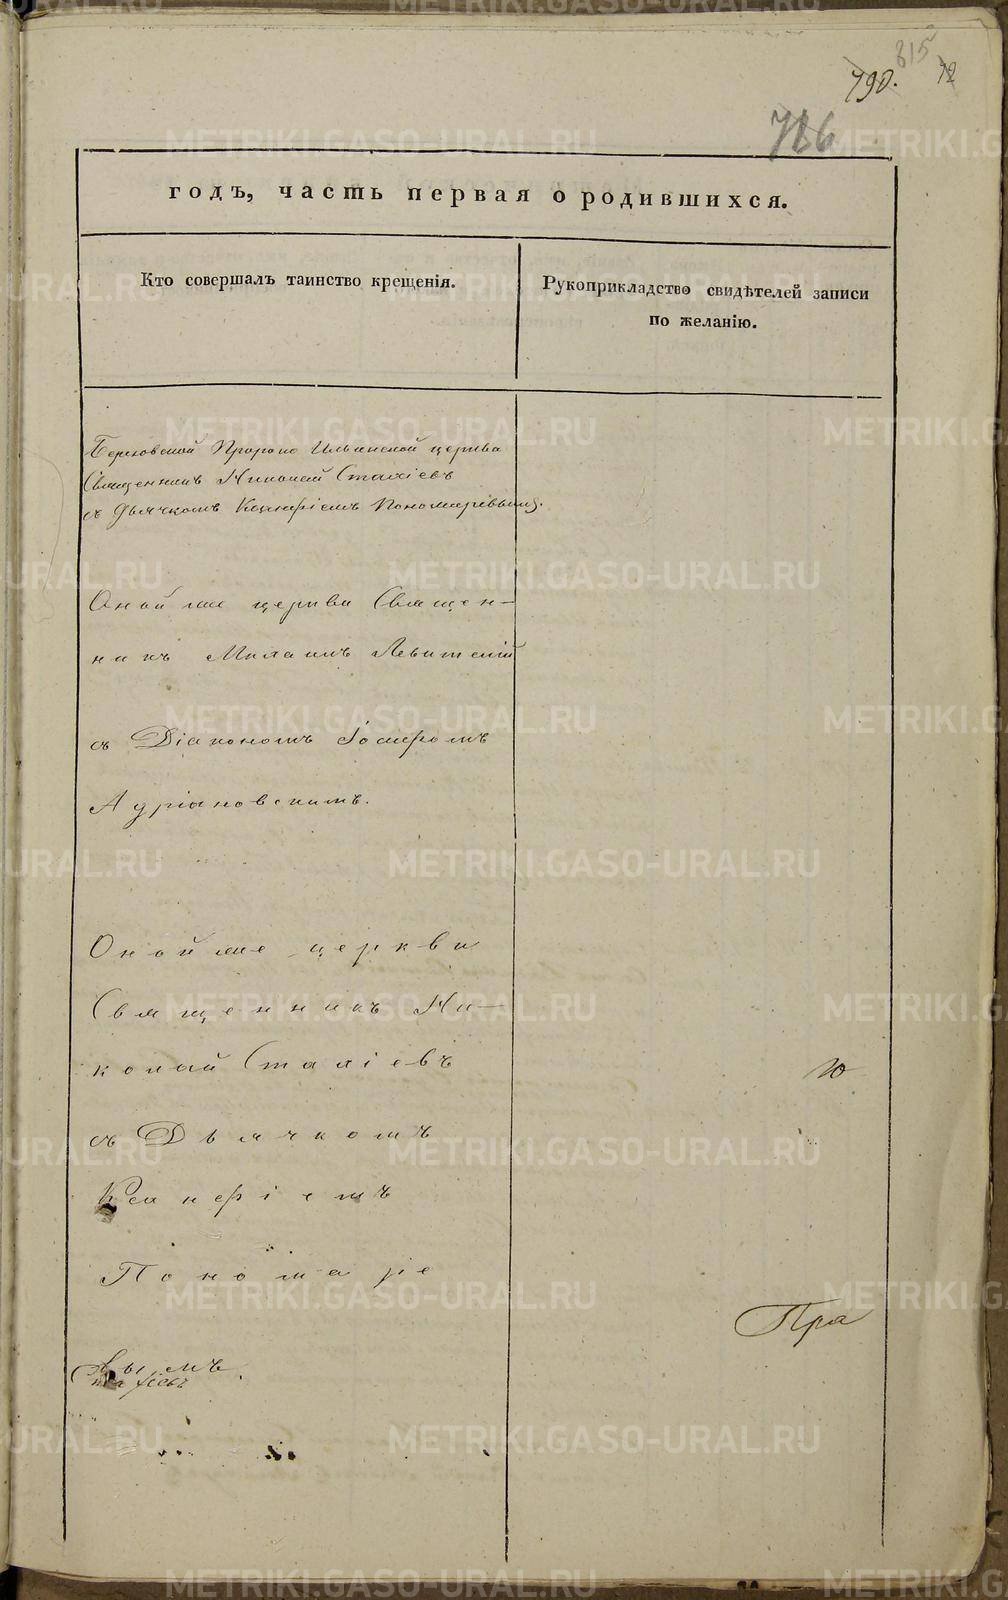 815
790. 12
786
годъ, часть первая о родившихся.
Кто совершалъ таинство крещенія.
Рукоприкладство свидѣтелей записи
по желанію.
Пророко Ильинской церкви
Священникъ Николай Стахіевъ
съ Дьячкомъ Ксанфіемъ Пономаревымъ.
Оной же церкви Священ-
никъ Михаилъ Левитскій
съ Діакономъ Іосифомъ
Адріановскимъ.
Оной же церкви
Священникъ Ни-
колай Стахіевъ
ю
съ Дьячкомъ
Ксанфіемъ
Пономаре
Пра
вымъ.
Стахіевъ
METRIKI.GASO-URAL.RU